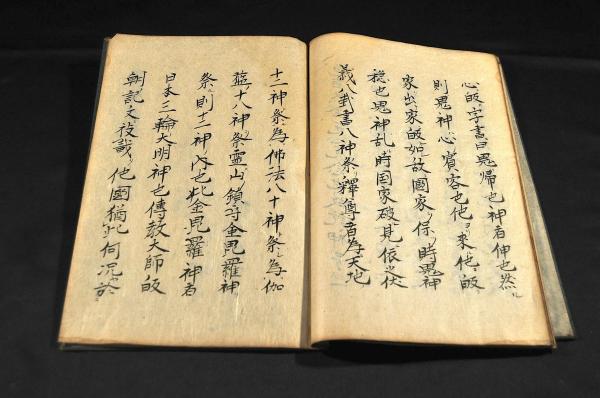 心皈字書曰鬼帰也神者伸也然
則鬼神心賓客也他来他皈
家出家皈如故國家保時鬼神
穏也鬼神乱時国家破見依之伏
義八卦書八神祭釋尊者為天地
十二神祭為佛法八十神祭為伽
藍十八神祭霊山鎮守金毘羅神
祭則十二神内也此金毘羅神者
日本三輪大明神也傳教大師皈
朝記文被載他國猶此何況於